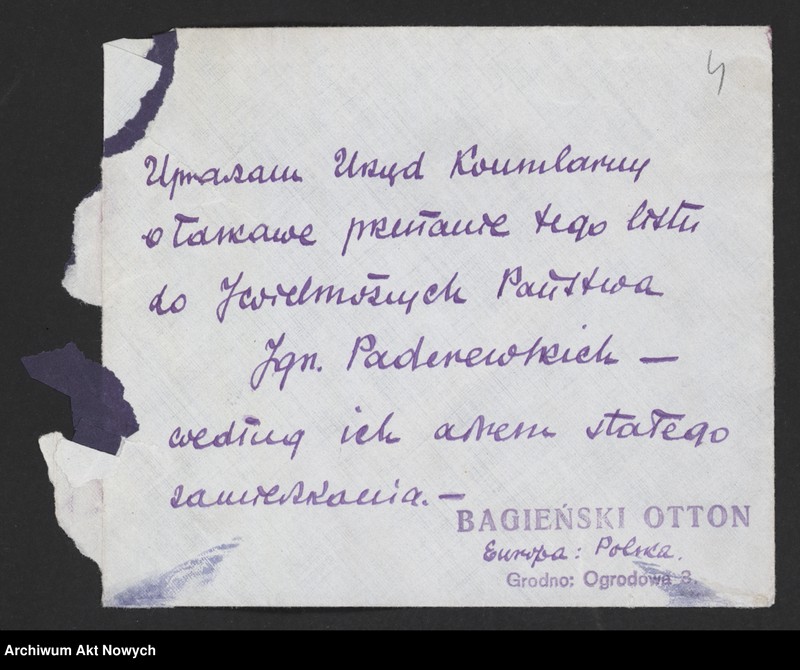 4
Upraszam Urząd Konsularny
o łaskawe przesłanie tego listu
do JWielmożnych Państwa
Ign. Paderewskich —
według ich adresu stałego
zamieszkania. —
BAGIEŃSKI OTTON
Europa: Polska.
Grodno: Ogrodowa 3.
Archiwum Akt Nowych